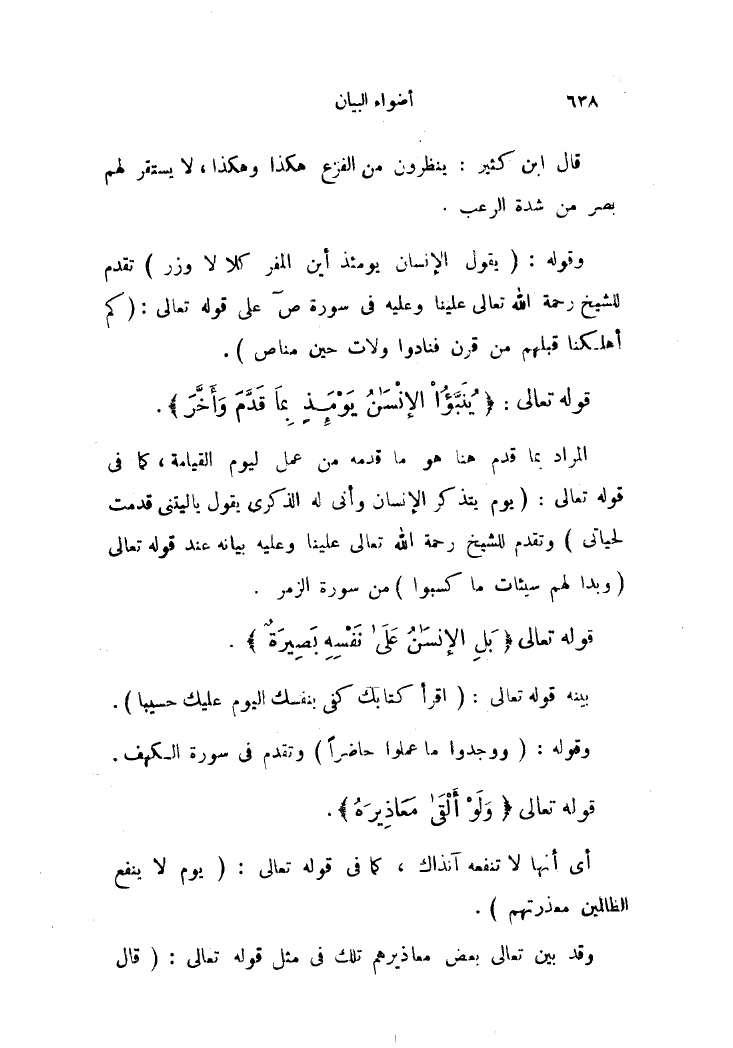 ٦٣٨ أضواء البيان
قال ابن كثير : ينظرون من الفزع هكذا وهكذا ، لا يستقر لهم
بصر من شدة الرعب .
وقوله : ( يقول الإنسان يومئذ أين المفر كلا لا وزر ) تقدم
للشيخ رحمة الله تعالى علينا وعليه فى سورة صٓ على قوله تعالى : ( كم
أهلكنا قبلهم من قرن فنادوا ولات حين مناص ) .
قوله تعالى : ﴿ يُنَبَّؤُاْ الإِنْسَٰنُ يَوْمَئِذٍ بِمَا قَدَّمَ وَأَخَّرَ ﴾ .
المراد بما قدم هنا هو ما قدمه من عمل ليوم القيامة ، كما فى
قوله تعالى : ( يوم يتذكر الإنسان وأنى له الذكرى يقول ياليتنى قدمت
لحياتى ) وتقدم للشيخ رحمة الله تعالى علينا وعليه بيانه عند قوله تعالى
( وبدا لهم سيئات ما كسبوا ) من سورة الزمر .
قوله تعالى ﴿ بَلِ الإِنْسَٰنُ عَلَىٰ نَفْسِهِ بَصِيرَةٌ ﴾ .
بينه قوله تعالى : ( اقرأ كتابك كفى بنفسك اليوم عليك حسيبا ) .
وقوله : ( ووجدوا ما عملوا حاضراً ) وتقدم فى سورة الكهف .
قوله تعالى ﴿ وَلَوْ أَلْقَىٰ مَعَاذِيرَهُ ﴾ .
أى أنها لا تنفعه آنذاك ، كما فى قوله تعالى : ( يوم لا ينفع
الظالمين معذرتهم ) .
وقد بين تعالى بعض معاذيرهم تلك فى مثل قوله تعالى : ( قال